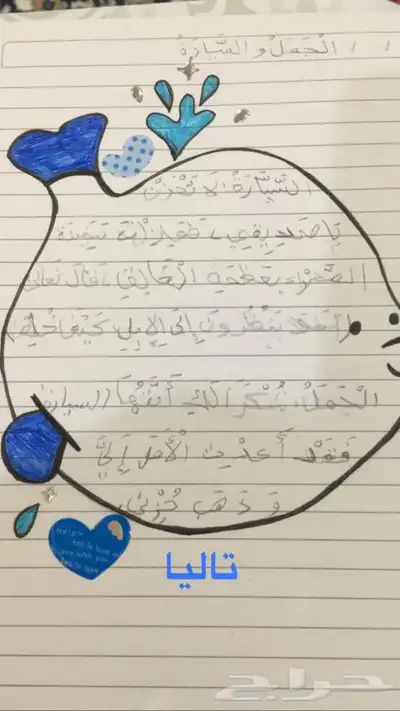 الْجَمَلُ وَالسَّيَّارَةُ
السَّيَّارَةُ لَا تَحْزَنْ
يَا صَدِيقِي، فَ سَفِينَة
الصَّحْرَاء بِعَظَمَةِ الْخَالِقِ، قَالَ تَعَالَى
(أَفَلَا يَنْظُرُونَ إِلَى الْإِبِلِ كَيْفَ خُلِقَتْ)
الْجَمَلُ: شُكْرًا لَكِ أَيَّتُهَا السيارة،
فَقَدْ أَعَدْتِ الْأَمَلَ إِلَيَّ
وَ ذَهَبَ حُزْنِي.
تاليا
حراج